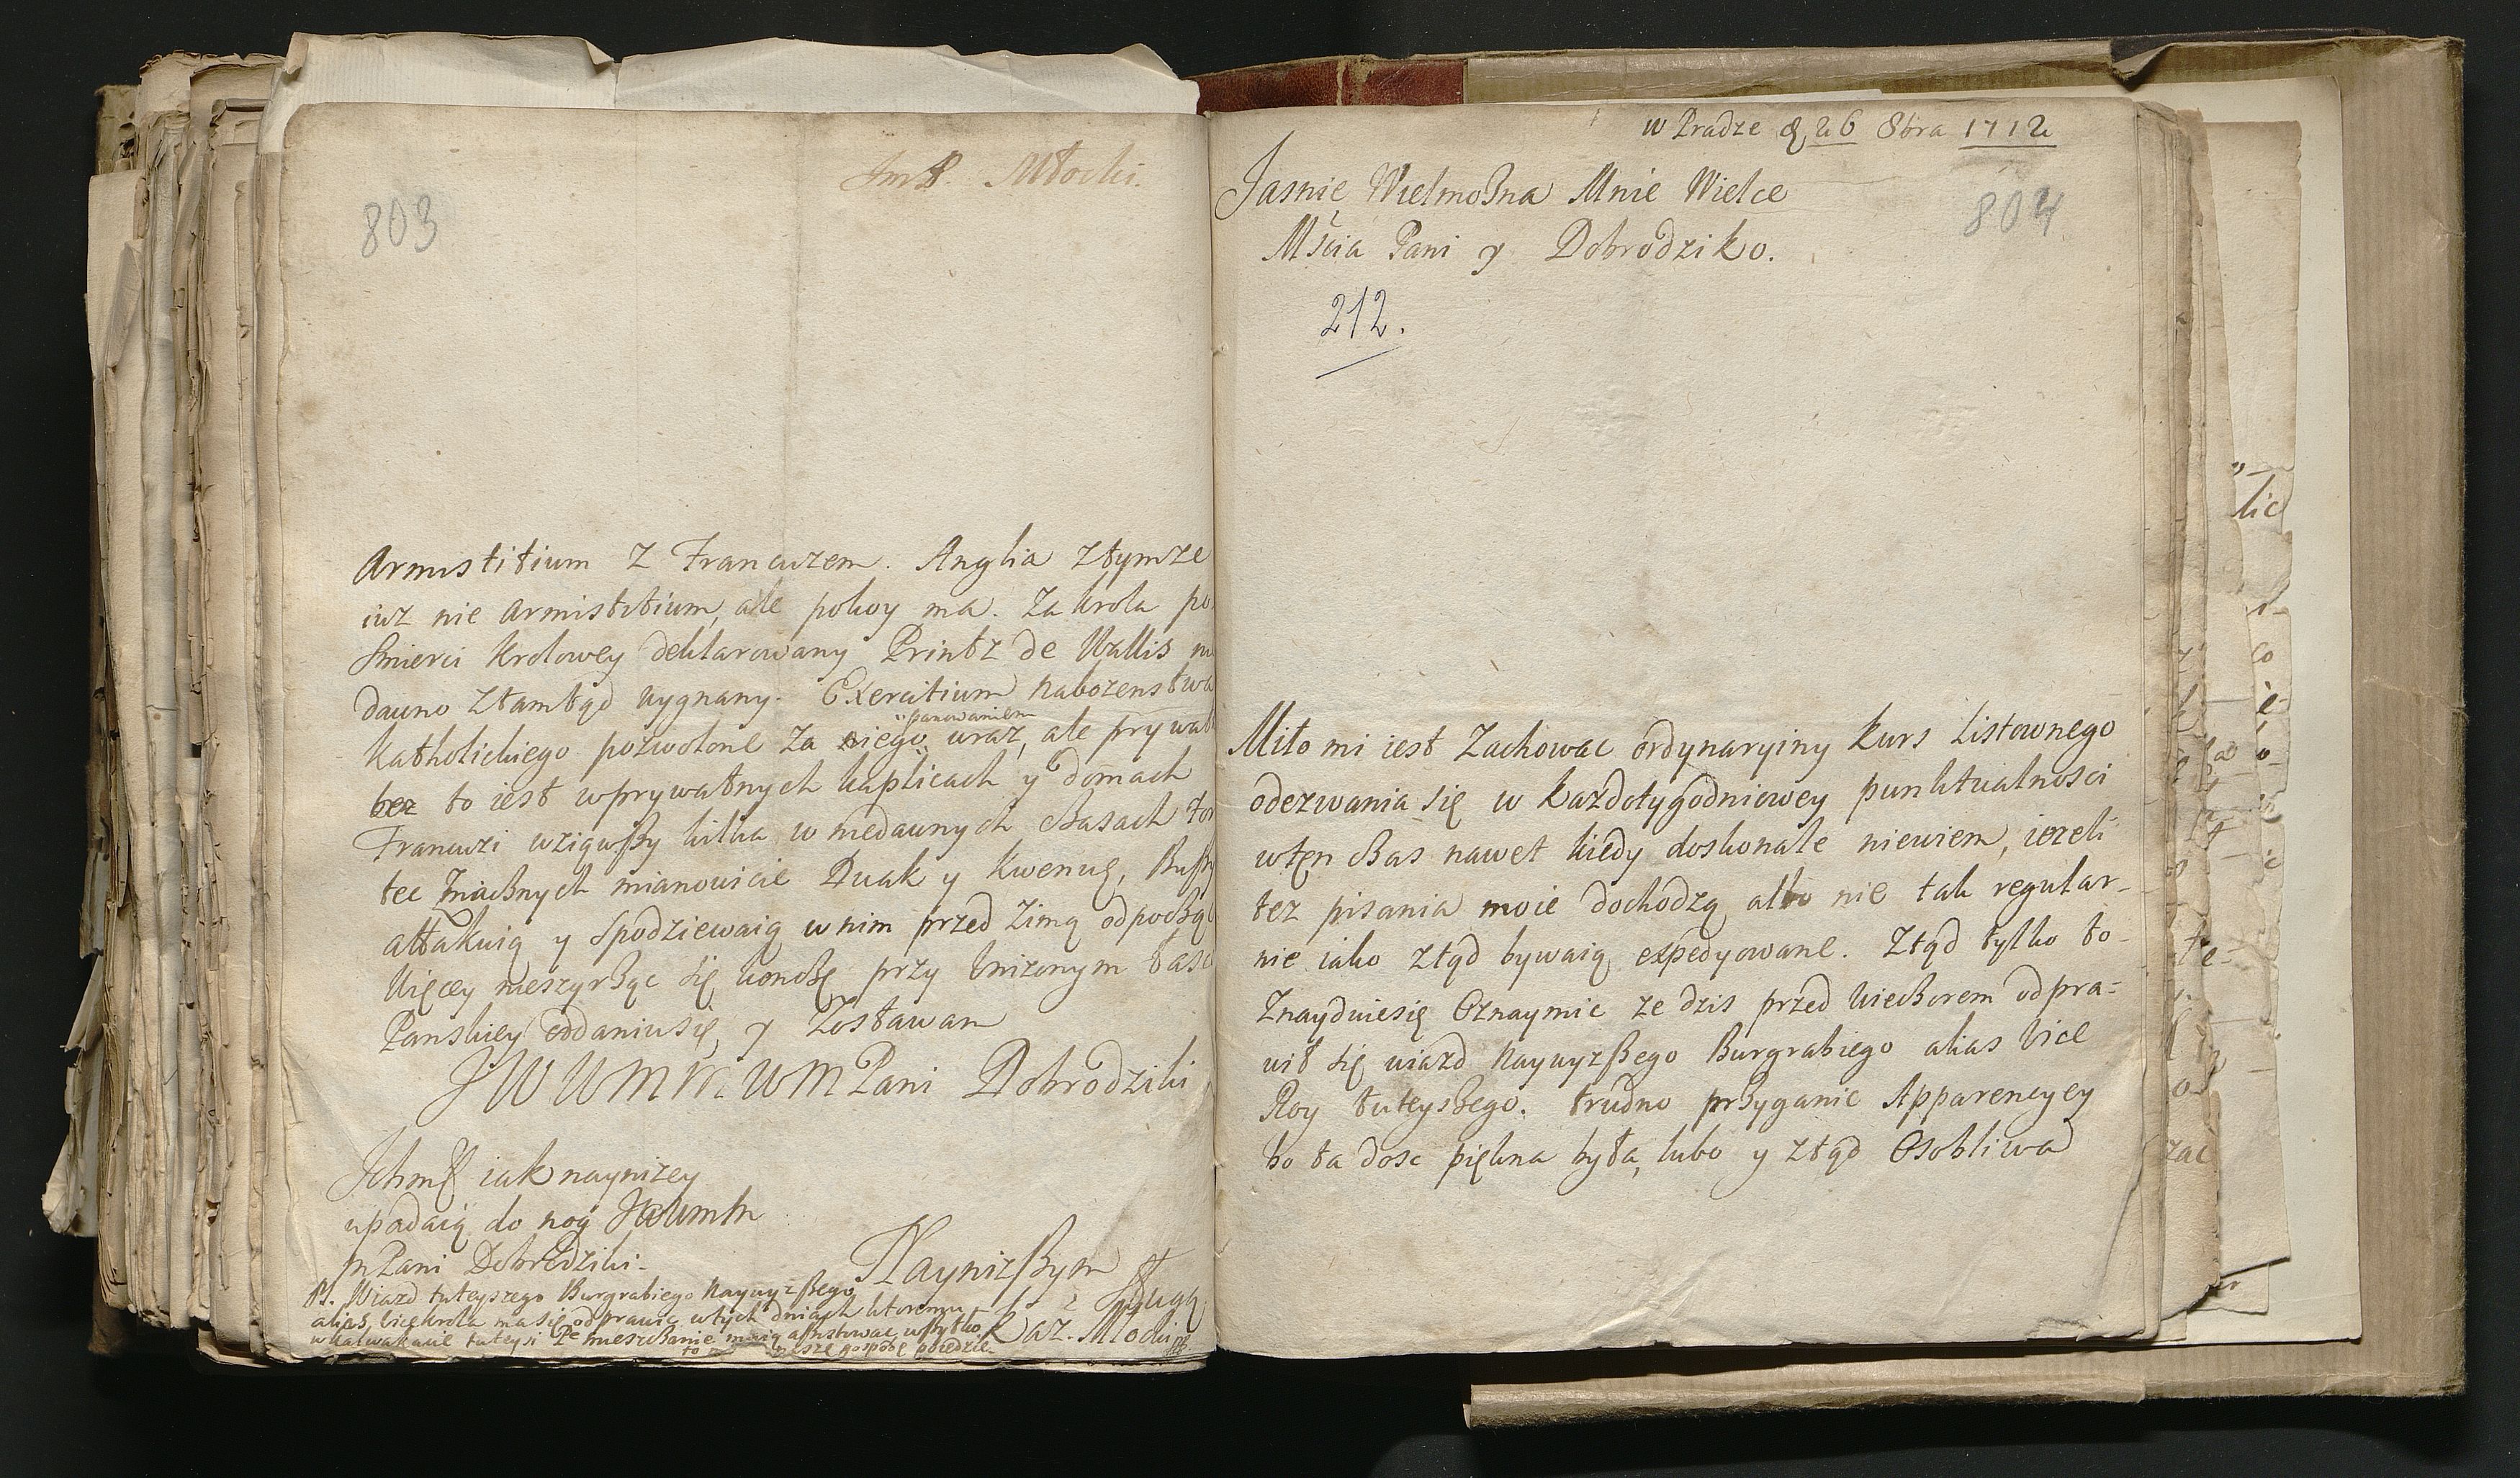 803
JmP. Młocki.
Armistitium Z Francuzem. Anglia Ztymze
iuz nie armistitium, ale pokoy ma. Za krola po
Smierci Krolowey deklarowany Printz de Wallis
dawno Ztamtąd wygnany. Exercitium nabozenstwa
panowaniem
Katholickiego pozwolone za niego wraz, ale prywat
bez to iest wprywatnych kaplicach y domach
Francuzi wziąwßy kilka w niedawnych cźasach for
tec Znacźnych mianowicie Duak y Kwenuę,
attakuią y Spodziewaią wnim przed Zimą odpocźąc
Więcey nieszyrźąc się koncźę przy Unizonym łasc
Panskiey oddaniu się, y Zostawam
JWWMMWMPani Dobrodziki
Jchmć iak naynizey
upadaią do nog JWWmM
mPani Dobrodziki.
Naynizßym Sługą
Kaz. Młocki
PS. Wiazd tuteyszego Burgrabiego Naywyzßego
alias vicekrola ma się odprawic wtych dniach ktoremu
w kalwakacie tuteysi
w Pradze d 26 8bra 1712
804
Jasnie Wielmoźna Mnie Wielce
Mścia Pani y Dobrodziko.
212.
Miło mi iest Zachowac ordynaryiny kurs Listownego
odezwania się w kazdotygodniowey punktualnosci
wten cźas nawet kiedy doskonale niewiem, iezeli
tez pisania moie dochodzą albo nie tak regular-
nie iako ztąd bywaią expedyowane. Ztąd tylko to
Znayduiesię Oznaymic ze dzis przed Wiecźorem odpra=
wił się wiazd Naywyzßego Burgrabiego alias Vice
Roy tuteysźego. trudno przyganic Apparencyey
bo ta dosc piękna była, lubo y ztąd Osobliwa